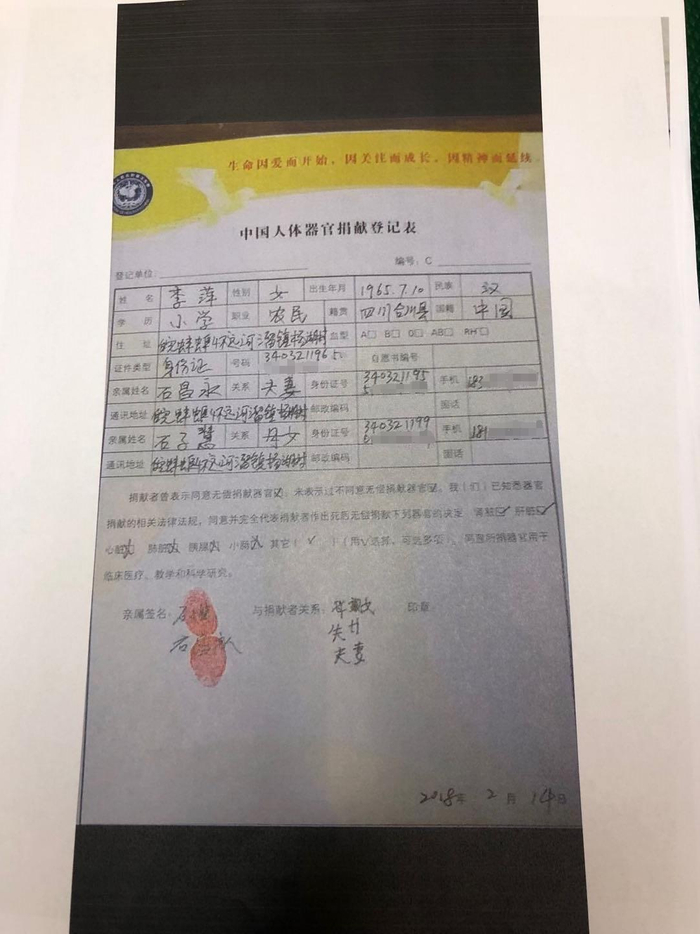 生命因爱而开始，因关注而成长，因精神而延续
中国人体器官捐献登记表
登记单位： 编号：C
姓 名 李萍 性别 女 出生年月 1965.7.10 民族 汉
学 历 小学 职业 农民 籍贯 四川合川县 国籍 中国
住 址 皖蚌埠怀远河溜镇 血型 A□ B□ O□ AB□ RH□
证件类型 身份证 号码 340321196 自愿书编号
亲属姓名 石昌永 关系 夫妻 身份证号 340321195 手机 183
通讯地址 皖蚌埠怀远河溜镇 邮政编码 固话
亲属姓名 石子慧 关系 母女 身份证号 340321199 手机 181
通讯地址 皖蚌埠怀远河溜镇 邮政编码 固话
捐献者曾表示同意无偿捐献器官，未表示过不同意无偿捐献器官。我（们）已知悉器官
捐献的相关法律法规，同意并完全代表捐献者作出死后无偿捐献下列器官的决定：肾脏 肝脏
心脏 肺脏 胰腺 小肠 其它（ ✓ ）（用√选择，可选多项）。同意所捐器官用于
临床医疗、教学和科学研究。
亲属签名： 与捐献者关系： 印章
夫妻
2018年 2 月 14日